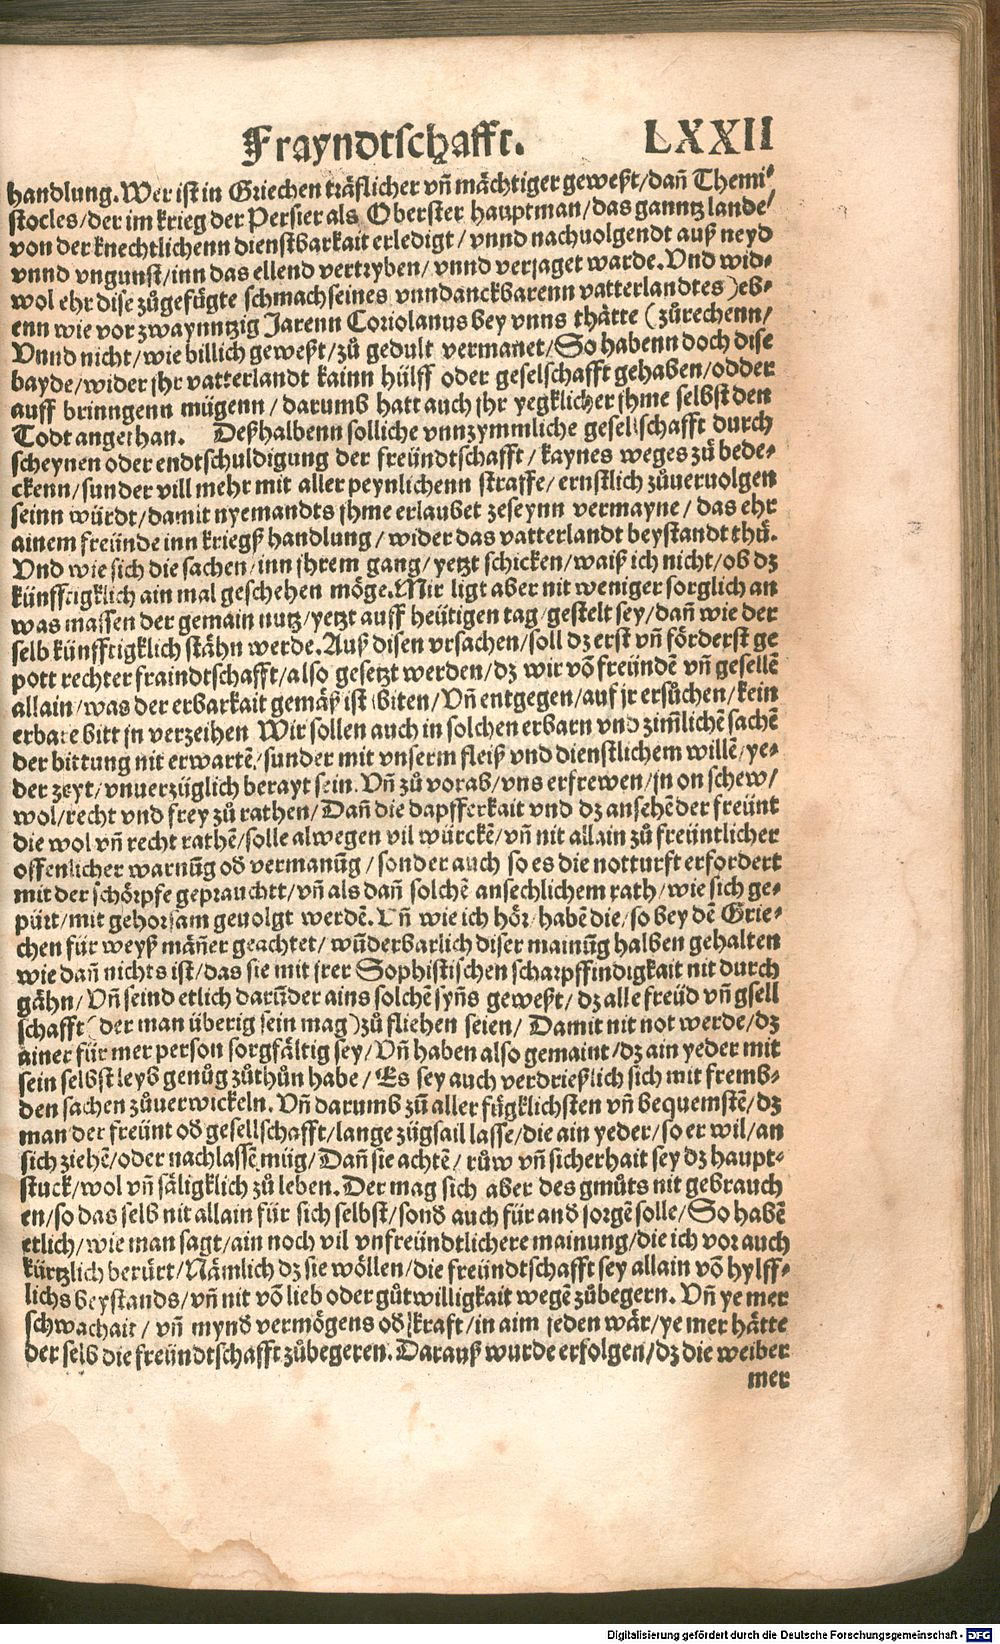 Frayndtschafft. LXXII
handlung. Wer ist in Griechen träflicher vñ mächtiger geweßt/dañ Themi⸗
stocles/der im krieg der Persier als Oberster hauptman/das ganntz lande/
von der knechtlichenn dienstbarkait erledigt/vnnd nachuolgendt auß neyd
vnnd vngunst/inn das ellend vertryben/vnnd verjaget warde. Vnd wid⸗
wol ehr dise zůgefügte schmach seines vnndanckbarenn vatterlandtes) eb⸗
enn wie vor zwaynntzig Jarenn Coriolanus bey vnns thätte (zůrechenn/
Vnnd nicht/wie billich geweßt/zů gedult vermanet/So habenn doch dise
bayde/wider jhr vatterlandt kainn hülff oder geselschafft gehaben/odder
auff brinngenn mügenn/darumb hatt auch jhr yegklicher jhme selbst den
Todt angethan. Deßhalbenn solliche vnnzymmliche gesellschafft durch
scheynen oder endtschuldigung der freündtschafft/kaynes weges zů bede⸗
ckenn/sunder vill mehr mit aller peynlichenn straffe/ernstlich zůueruolgen
seinn würdt/damit nyemandts jhme erlaubet zeseynn vermayne/das ehr
ainem freünde inn kriegß handlung/wider das vatterlandt beystandt thů.
Vnd wie sich die sachen/inn jhrem gang/yetzt schicken/waiß ich nicht/ob dz
künfftigklich ain mal geschehen möge. Mir ligt aber nit weniger sorglich an
was massen der gemain nutz/yetzt auff heütigen tag/gestelt sey/dañ wie der
selb künfftigklich stähn werde. Auß disen vrsachen/soll dz erst vñ förderst ge
pott rechter fraindtschafft/also gesetzt werden/dz wir võ freündẽ vñ gesellẽ
allain/was der erbarkait gemäß ist biten/Vñ entgegen/auf jr ersůchen/kein
erbare bitt jn verzeihen Wir sollen auch in solchen erbarn vnd zim̃lichẽ sachẽ
der bittung nit erwartẽ/sunder mit vnserm fleiß vnd dienstlichem willẽ/ye⸗
der zeyt/vnuerzüglich berayt sein. Vñ zů vorab/vns erfrewen/jn on schew/
wol/recht vnd frey zů rathen/Dañ die dapfferkait vnd dz ansehẽ der freünt
die wol vñ recht rathẽ/solle alwegen vil würckẽ/vñ nit allain zů freüntlicher
offenlicher warnũg oď vermanũg/sonder auch so es die notturft erfordert
mit der schörpfe geprauchtt/vñ als dañ solchẽ ansechlichem rath/wie sich ge⸗
pürt/mit gehorsam geuolgt werdẽ. Vñ wie ich hör/habẽ die/so bey dẽ Grie⸗
chen für weyß mãñer geachtet/wũderbarlich diser mainũg halben gehalten
wie dañ nichts ist/das sie mit jrer Sophistischen scharpffindigkait nit durch
gähn/Vñ seind etlich darũder ains solchẽ syñs geweßt/dz alle freüd vñ gsell
schafft (der man überig sein mag) zů fliehen seien/Damit nit not werde/dz
ainer für mer person sorgfältig sey/Vñ haben also gemaint/dz ain yeder mit
sein selbst leyb genůg zůthůn habe/Es sey auch verdrießlich sich mit fremb⸗
den sachen zůuerwickeln. Vñ darumb zũ aller fügklichsten vñ bequemstẽ/dz
man der freünt oď gesellschafft/lange zügsail lasse/die ain yeder/so er wil/an
sich ziehẽ/oder nachlassẽ müg/Dañ sie achtẽ/růw vñ sicherhait sey dz haupt⸗
stuck/wol vñ säligklich zů leben. Der mag sich aber des gmůts nit gebrauch
en/so das selb nit allain für sich selbst/sonď auch für anď sorgẽ solle/So habẽ
etlich/wie man sagt/ain noch vil vnfreündtlichere mainung/die ich vor auch
kürtzlich berürt/Nämlich dz sie wöllen/die freündtschafft sey allain võ hylff⸗
lichs beystands/vñ nit võ lieb oder gůtwilligkait wegẽ zůbegern. Vñ ye mer
schwachait/vñ mynď vermögens oď kraft/in aim jeden wär/ye mer hätte
der selb die freündtschafft zůbegeren. Darauß wurde erfolgen/dz die weiber
mer
Digitalisierung gefördert durch die Deutsche Forschungsgemeinschaft - DFG